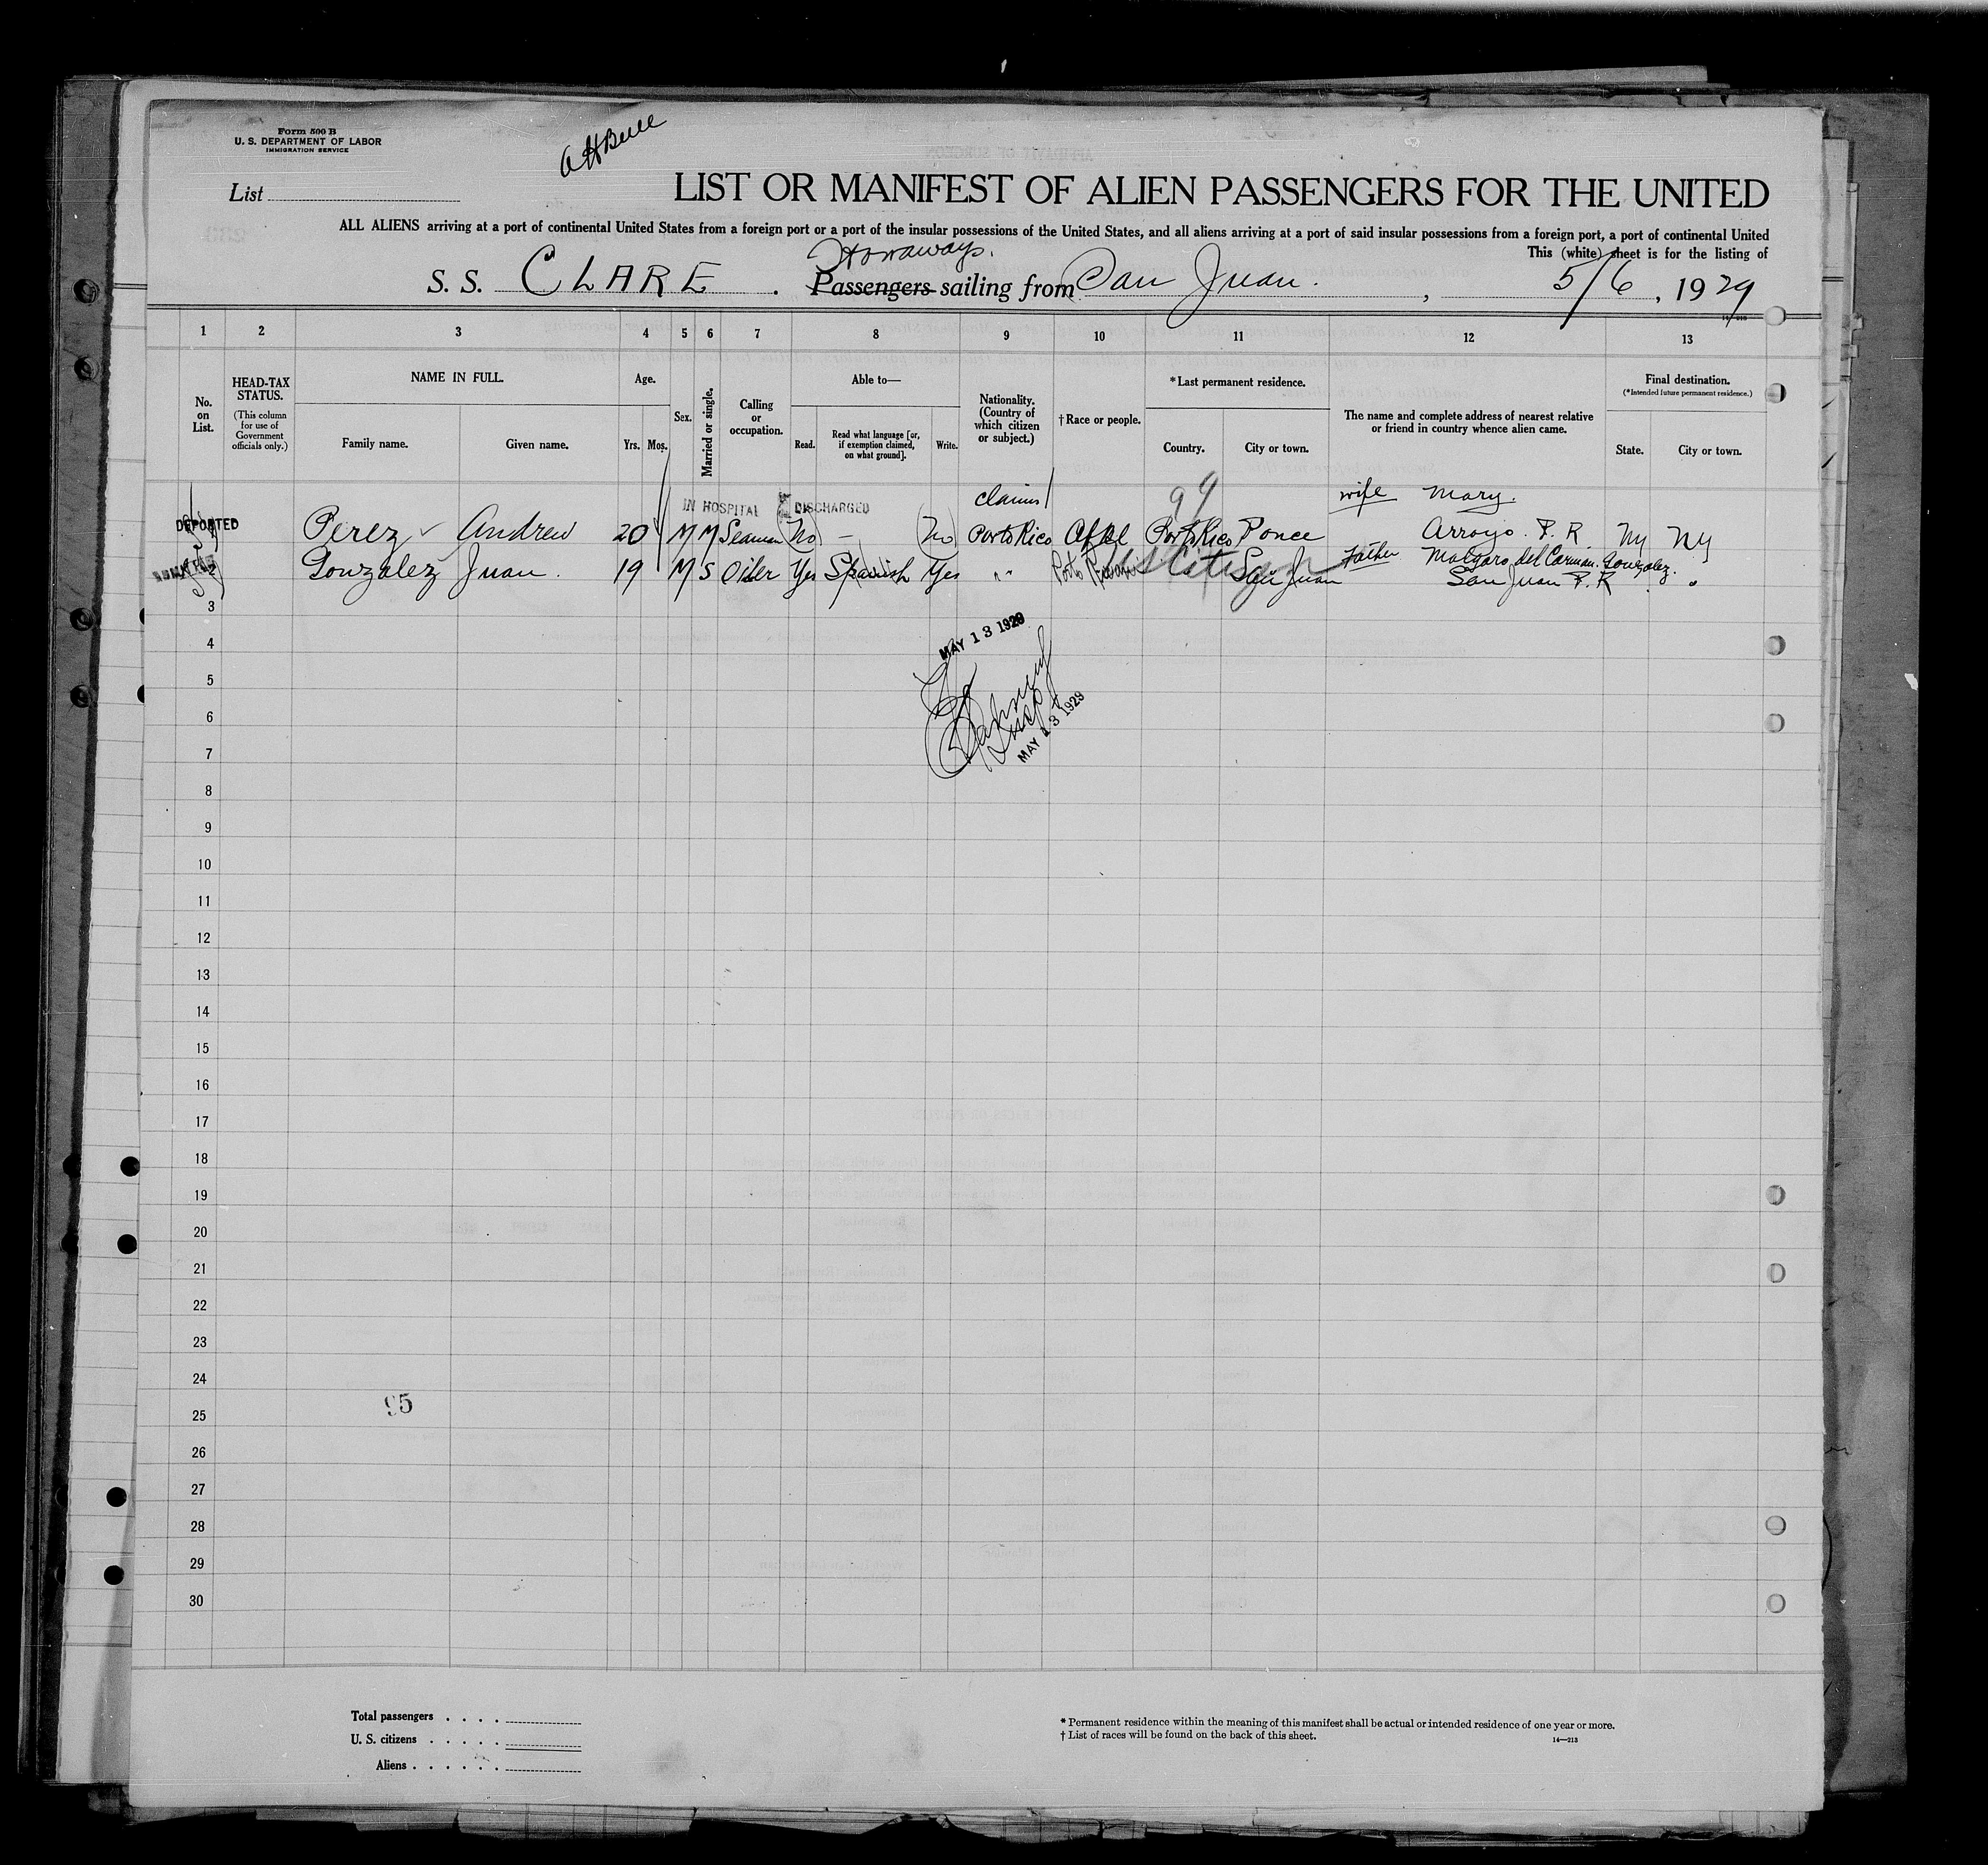 Form 500 B
U. S. DEPARTMENT OF LABOR
IMMIGRATION SERVICE
A H Bull
List
LIST OR MANIFEST OF ALIEN PASSENGERS FOR THE UNITED
ALL ALIENS arriving at a port of continental United States from a foreign port or a port of the insular possessions of the United States, and all aliens arriving at a port of said insular possessions from a foreign port, a port of continental United
This (white) sheet is for the listing of
Stowaways.
S. S. CLARE. Passengers sailing from San Juan. , 5/6, 1929
1 2 3 4 5 6 7 8 9 10 11 12 13
No. on List.
HEAD-TAX STATUS.
(This column for use of Government officials only.)
NAME IN FULL.
Family name. Given name.
Age.
Yrs. Mos.
Sex.
Married or single.
Calling or occupation.
Able to—
Read. Read what language [or, if exemption claimed, on what ground]. Write.
Nationality. (Country of which citizen or subject.)
† Race or people.
*Last permanent residence.
Country. City or town.
The name and complete address of nearest relative or friend in country whence alien came.
Final destination.
(*Intended future permanent residence.)
State. City or town.
IN HOSPITAL DISCHARGED claims 99 wife Mary.
DEPORTED Perez Andrew 20 M M Seaman No — No Porto Rico Af Bl Porto Rico Ponce Arroyo. P. R. NY NY
2 Gonzalez Juan. 19 M S Oiler Yes Spanish Yes " " Porto Rican US Citizen San Juan Father del Carmen Gonzalez.
San Juan P. R. "
3
MAY 13 1929
4
5
6
Insp
MAY 13 1929
7
8
9
10
11
12
13
14
15
16
17
18
19
20
21
22
23
24
95
25
26
27
28
29
30
Total passengers . . . .
U. S. citizens . . . . .
Aliens . . . . . .
* Permanent residence within the meaning of this manifest shall be actual or intended residence of one year or more.
† List of races will be found on the back of this sheet.
14—213